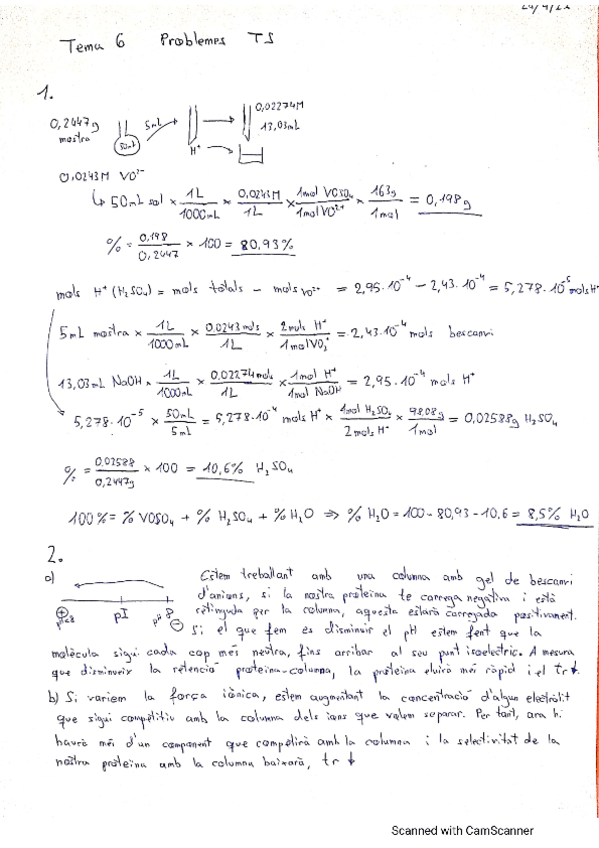 20/4/21
Tema 6 Problemes TS
1.
0,2447g mostra
50mL
5mL
H⁺
0,02274M
13,03mL
0,0243M VO²⁻
↳ 50mL sol × 1L/1000mL × 0,0243M/1L × 1mol VOSO₄/1mol VO²⁺ × 163g/1mol = 0,198g
% = 0,198/0,2447 × 100 = 80,93%
mols H⁺ (H₂SO₄) = mols totals - mols VO²⁺ = 2,95·10⁻⁴ - 2,43·10⁻⁴ = 5,278·10⁻⁵ mols H⁺
5mL mostra × 1L/1000mL × 0,0243 mols/1L × 2mols H⁺/1mol VO₂⁺ = 2,43·10⁻⁴ mols bescanvi
13,03mL NaOH × 1L/1000mL × 0,02274mols/1L × 1mol H⁺/1mol NaOH = 2,95·10⁻⁴ mols H⁺
5,278·10⁻⁵ × 50mL/5mL = 5,278·10⁻⁴ mols H⁺ × 1mol H₂SO₄/2mols H⁺ × 98,08g/1mol = 0,02588g H₂SO₄
% = 0,02588/0,2447g × 100 = 10,6% H₂SO₄
100% = % VOSO₄ + % H₂SO₄ + % H₂O ⇒ % H₂O = 100 - 80,93 - 10,6 = 8,5% H₂O
2.
a) Estem treballant amb una columna amb gel de bescanvi
d'anions, si la nostra proteïna te carrega negativa i està
retinguda per la columna, aquesta estarà carregada positivament.
⊕ pI pH 8 ⊖
Si el que fem es disminuir el pH estem fent que la
molècula sigui cada cop més neutra, fins arribar al seu punt isoelectric. A mesura
que disminueix la retenció proteïna-columna, la proteïna eluirà més ràpid i el tr↓.
b) Si variem la força iònica, estem augmentant la concentració d'algun electròlit
que sigui competitiu amb la columna dels ions que volem separar. Per tant, ara hi
haurà més d'un component que competirà amb la columna i la selectivitat de la
nostra proteïna amb la columna baixarà, tr ↓
Scanned with CamScanner